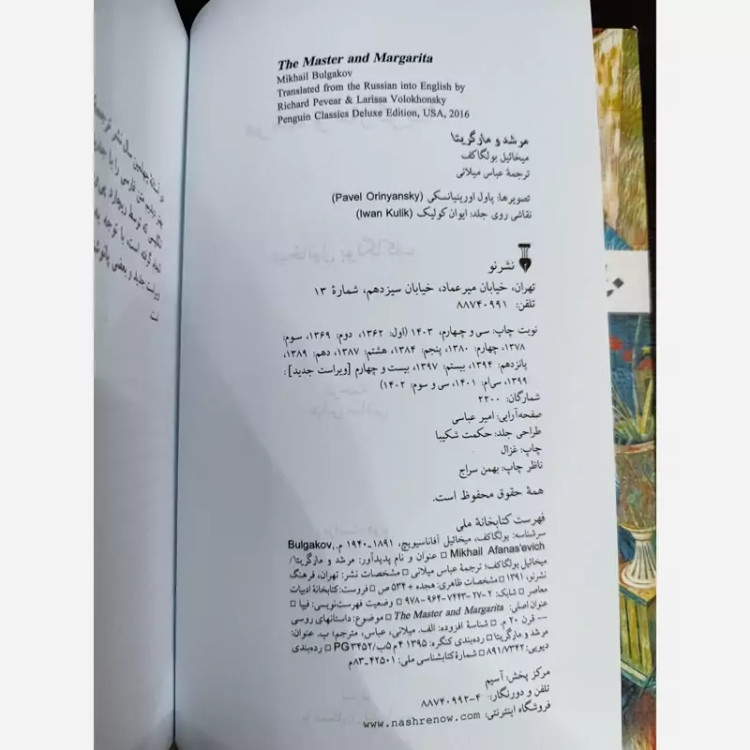 The Master and Margarita
Mikhail Bulgakov
Translated from the Russian into English by
Richard Pevear & Larissa Volokhonsky
Penguin Classics Deluxe Edition, USA, 2016
مرشد و مارگریتا
میخائیل بولگاکف
ترجمهٔ عباس میلانی
تصویرها: پاول اورینیانسکی (Pavel Orinyansky)
نقاشی روی جلد: ایوان کولیک (Iwan Kulik)
نشرنو
تهران، خیابان میرعماد، خیابان سیزدهم، شمارهٔ ۱۳
تلفن: ۸۸۷۴۰۹۹۱
نوبت چاپ: سی و چهارم، ۱۴۰۳ (اول: ۱۳۶۲، دوم: ۱۳۶۹، سوم:
۱۳۷۸، چهارم: ۱۳۸۰، پنجم: ۱۳۸۴، هشتم: ۱۳۸۷، دهم: ۱۳۸۹،
پانزدهم: ۱۳۹۴، بیستم: ۱۳۹۷، بیست و چهارم [ویراست جدید]:
۱۳۹۹، سی‌ام: ۱۴۰۱، سی و سوم: ۱۴۰۲)
شمارگان: ۲۲۰۰
صفحه‌آرایی: امیر عباسی
طراحی جلد: حکمت شکیبا
چاپ: غزال
ناظر چاپ: بهمن سراج
همهٔ حقوق محفوظ است.
فهرست کتابخانهٔ ملی
سرشناسه: بولگاکف، میخائیل آفاناسیویچ، ۱۸۹۱ـ۱۹۴۰ م. Bulgakov,
Mikhail Afanas'evich □ عنوان و نام پدیدآور: مرشد و مارگریتا/
میخائیل بولگاکف؛ ترجمهٔ عباس میلانی □ مشخصات نشر: تهران، فرهنگ
نشرنو، ۱۳۹۱ □ مشخصات ظاهری: هجده + ۵۳۴ ص □ فروست: کتابخانهٔ ادبیات
معاصر □ شابک: ۲-۲۷-۷۴۴۳-۹۶۴-۹۷۸ □ وضعیت فهرست‌نویسی: فیپا □
عنوان اصلی: The Master and Margarita □ موضوع: داستانهای روسی
— قرن ۲۰ م. □ شناسهٔ افزوده: الف. میلانی، عباس، مترجم؛ ب. عنوان:
مرشد و مارگریتا □ رده‌بندی کنگره: ۱۳۹۵ ۴م ۵ب/PG۳۴۵۲ □ رده‌بندی
دیویی: ۸۹۱/۷۳۴۲ □ شمارهٔ کتابشناسی ملی: ۴۲۵۰۱-۸۳م
مرکز پخش: آسیم
تلفن و دورنگار: ۴-۸۸۷۴۰۹۹۲
فروشگاه اینترنتی: www.nashrenow.com